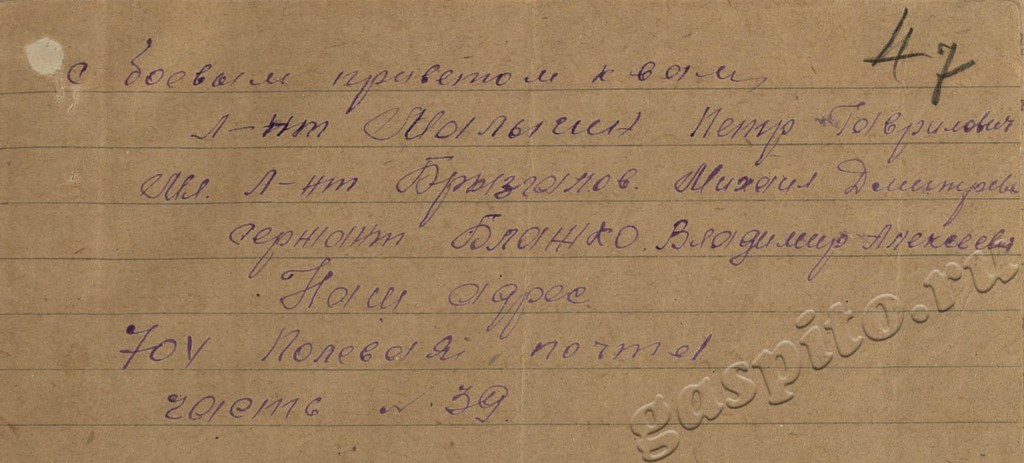 47
с боевым приветом к вам,
л-нт Малыгин Петр Гаврилович
Мл. л-нт Брызгалов. Михаил Дмитриеви
сержант Блажко. Владимир Алексееви
Наш адрес.
704 Полевая почта
часть № 39.
gaspito.ru